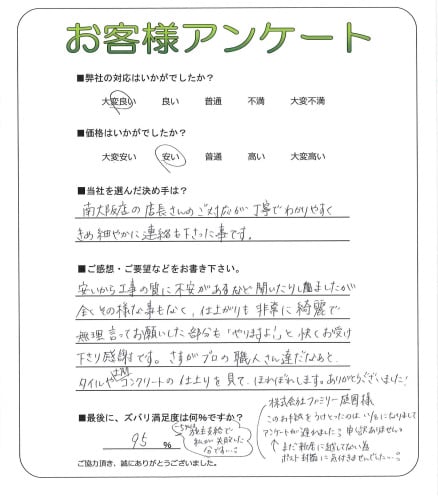 お客様アンケート
■弊社の対応はいかがでしたか?
大変良い 良い 普通 不満 大変不満
■価格はいかがでしたか?
大変安い 安い 普通 高い 大変高い
■当社を選んだ決め手は?
南大阪店の店長さんのご対応が丁寧でわかりやすく
きめ細やかに連絡も下さった事です。
■ご感想・ご要望などをお書き下さい。
安いから工事の質に不安があるなど聞いたりしましたが
全くその様な事もなく、仕上がりも非常に綺麗で
無理言ってお願いした部分も「やりますよ!」と快くお受け
下さり感謝です。さすがプロの職人さん達だなあと、
タイルや土間コンクリートの仕上りを見て、ほれぼれします。ありがとうございました!
■最後に、ズバリ満足度は何%ですか?
95 %
施主支給で
私が失敗した
分です…
株式会社ファミリー庭園様
このお手紙をうけとったのは になりまして
アンケートが遅れました? 申し訳ありません。
まだ新居に越してない為
ポスト封筒に気付きませんでした…
ご協力頂き、誠にありがとうございました。